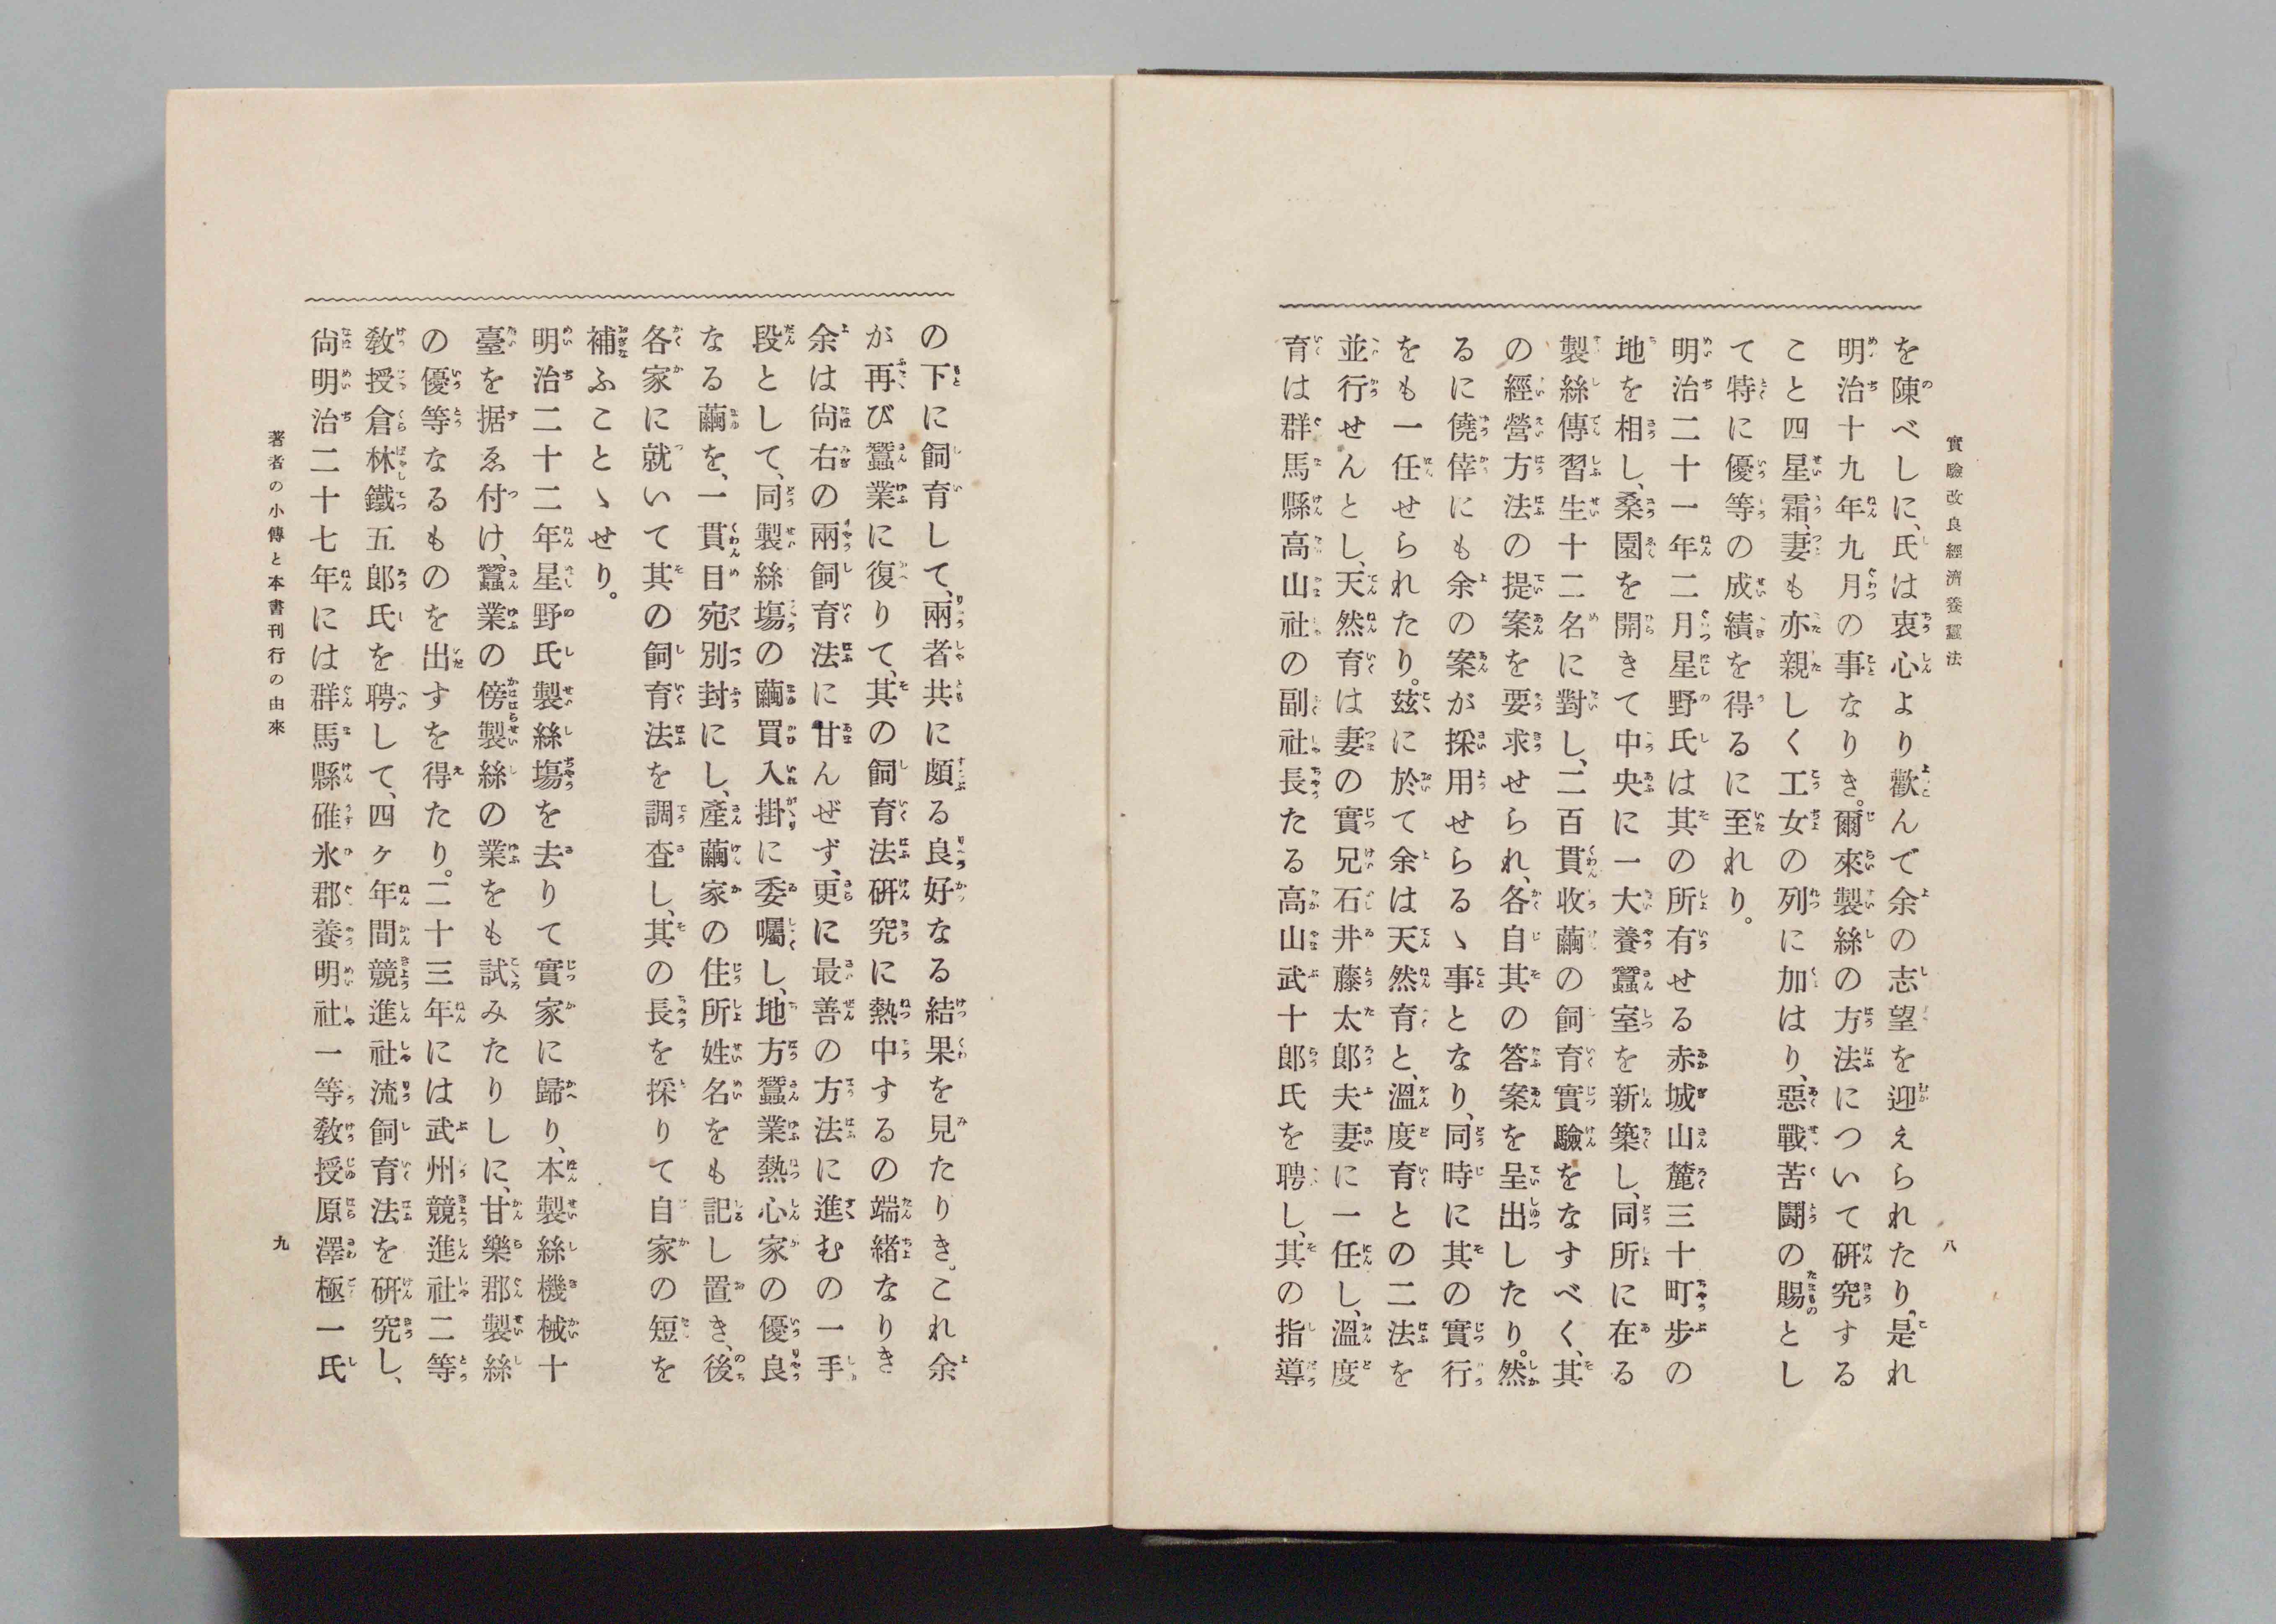 實驗改良經濟養蠶法
八
を陳べしに、氏は衷心より歡んで余の志望を迎えられたり、是れ
明治十九年九月の事なりき。爾來製絲の方法について研究する
こと四星霜、妻も亦親しく工女の列に加はり、惡戰苦鬪の賜とし
て特に優等の成績を得るに至れり。
明治二十一年二月星野氏は其の所有せる赤城山麓三十町步の
地を相し、桑園を開きて中央に一大養蠶室を新築し、同所に在る
製絲傳習生十二名に對し、二百貫收繭の飼育實驗をなすべく、其
の經營方法の提案を要求せられ、各自其の答案を呈出したり。然
るに僥倖にも余の案が採用せらるゝ事となり、同時に其の實行
をも一任せられたり。玆に於て余は天然育と、溫度育との二法を
並行せんとし、天然育は妻の實兄石井藤太郎夫妻に一任し、溫度
育は群馬縣高山社の副社長たる高山武十郎氏を聘し、其の指導
の下に飼育して、兩者共に頗る良好なる結果を見たりき。これ余
が再び蠶業に復りて、其の飼育法硏究に熱中するの端緖なりき
余は尙右の兩飼育法に甘んぜず、更に最善の方法に進むの一手
段として、同製絲塲の繭買入掛に委囑し、地方蠶業熱心家の優良
なる繭を、一貫目宛別封にし、產繭家の住所姓名をも記し置き、後
各家に就いて其の飼育法を調査し、其の長を採りて自家の短を
補ふことゝせり。
明治二十二年星野氏製絲塲を去りて實家に歸り、本製絲機械十
臺を据ゑ付け、蠶業の傍製絲の業をも試みたりしに、甘樂郡製絲
の優等なるものを出すを得たり。二十三年には武州競進社二等
敎授倉林鐵五郞氏を聘して、四ヶ年間競進社流飼育法を硏究し、
尙明治二十七年には群馬縣碓氷郡養明社一等敎授原澤極一氏
著者の小傳と本書刊行の由來
九